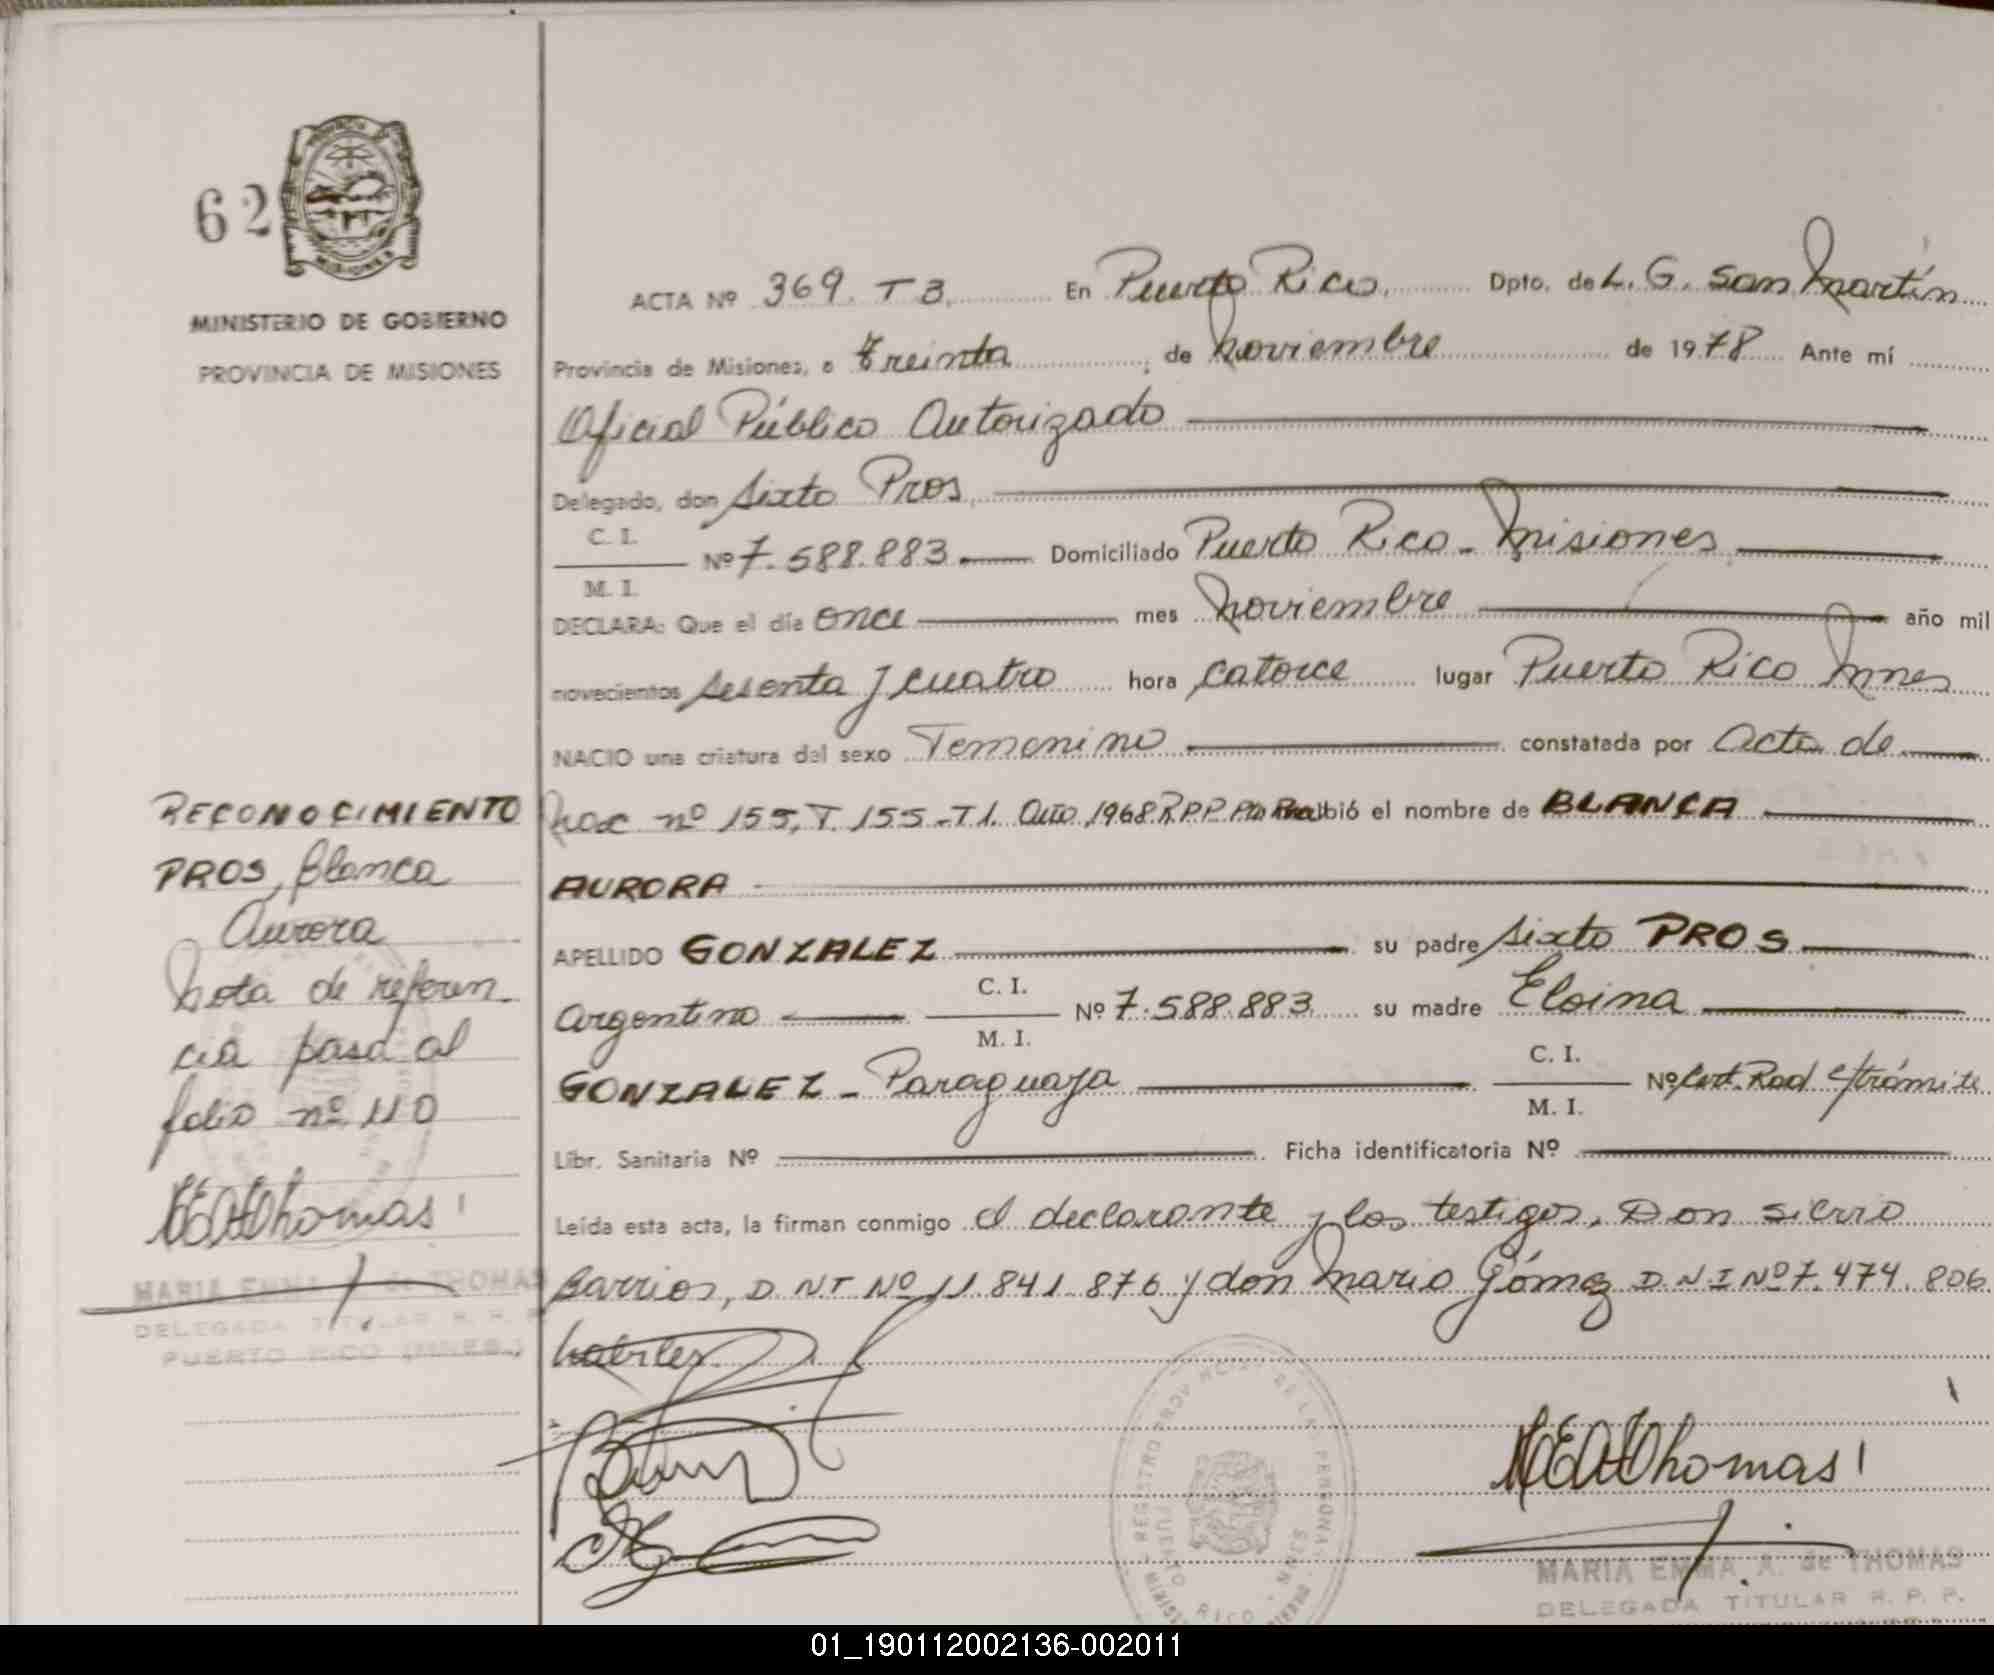 62
MINISTERIO DE GOBIERNO
PROVINCIA DE MISIONES
RECONOCIMIENTO
PROS, Blanca
Aurora
Nota de referen-
cia pasa al
folio nº 110
MEAThomas
MARIA EMMA A. de THOMAS
DELEGADA TITULAR R. P. P.
PUERTO RICO (MNES.)
ACTA Nº 369. T 3. En Puerto Rico, Dpto. de L. G. San Martín
Provincia de Misiones, a treinta de Noviembre de 1978 Ante mí
Oficial Público Autorizado
Delegado, don Sixto Pros,
C. I.
Nº 7.588.883. Domiciliado Puerto Rico - Misiones
M. I.
DECLARA: Que el día once mes Noviembre año mil
novecientos sesenta y cuatro hora catorce lugar Puerto Rico Mnes
NACIO una criatura del sexo Femenino constatada por Acta de
Nac nº 155, T. 155 - T1. Año 1968 R.P.P. Pto Rico recibió el nombre de BLANCA
AURORA
APELLIDO GONZALEZ su padre Sixto PROS
C. I.
argentino Nº 7.588.883 su madre Eloina
M. I.
C. I.
GONZALEZ - Paraguaya Nº Cert. Rad e/trámite
M. I.
Libr. Sanitaria Nº Ficha identificatoria Nº
Leída esta acta, la firman conmigo el declarante y los testigos, Don
Barrios, D. N I Nº 11.841.876 y don Mario Gómez D.N.I Nº 7.474.806
habiles.
REGISTRO PROVINCIAL DE LAS PERSONAS
PUERTO RICO - MNES
MEAThomas
MARIA EMMA A. de THOMAS
DELEGADA TITULAR R. P. P.
01_190112002136-002011